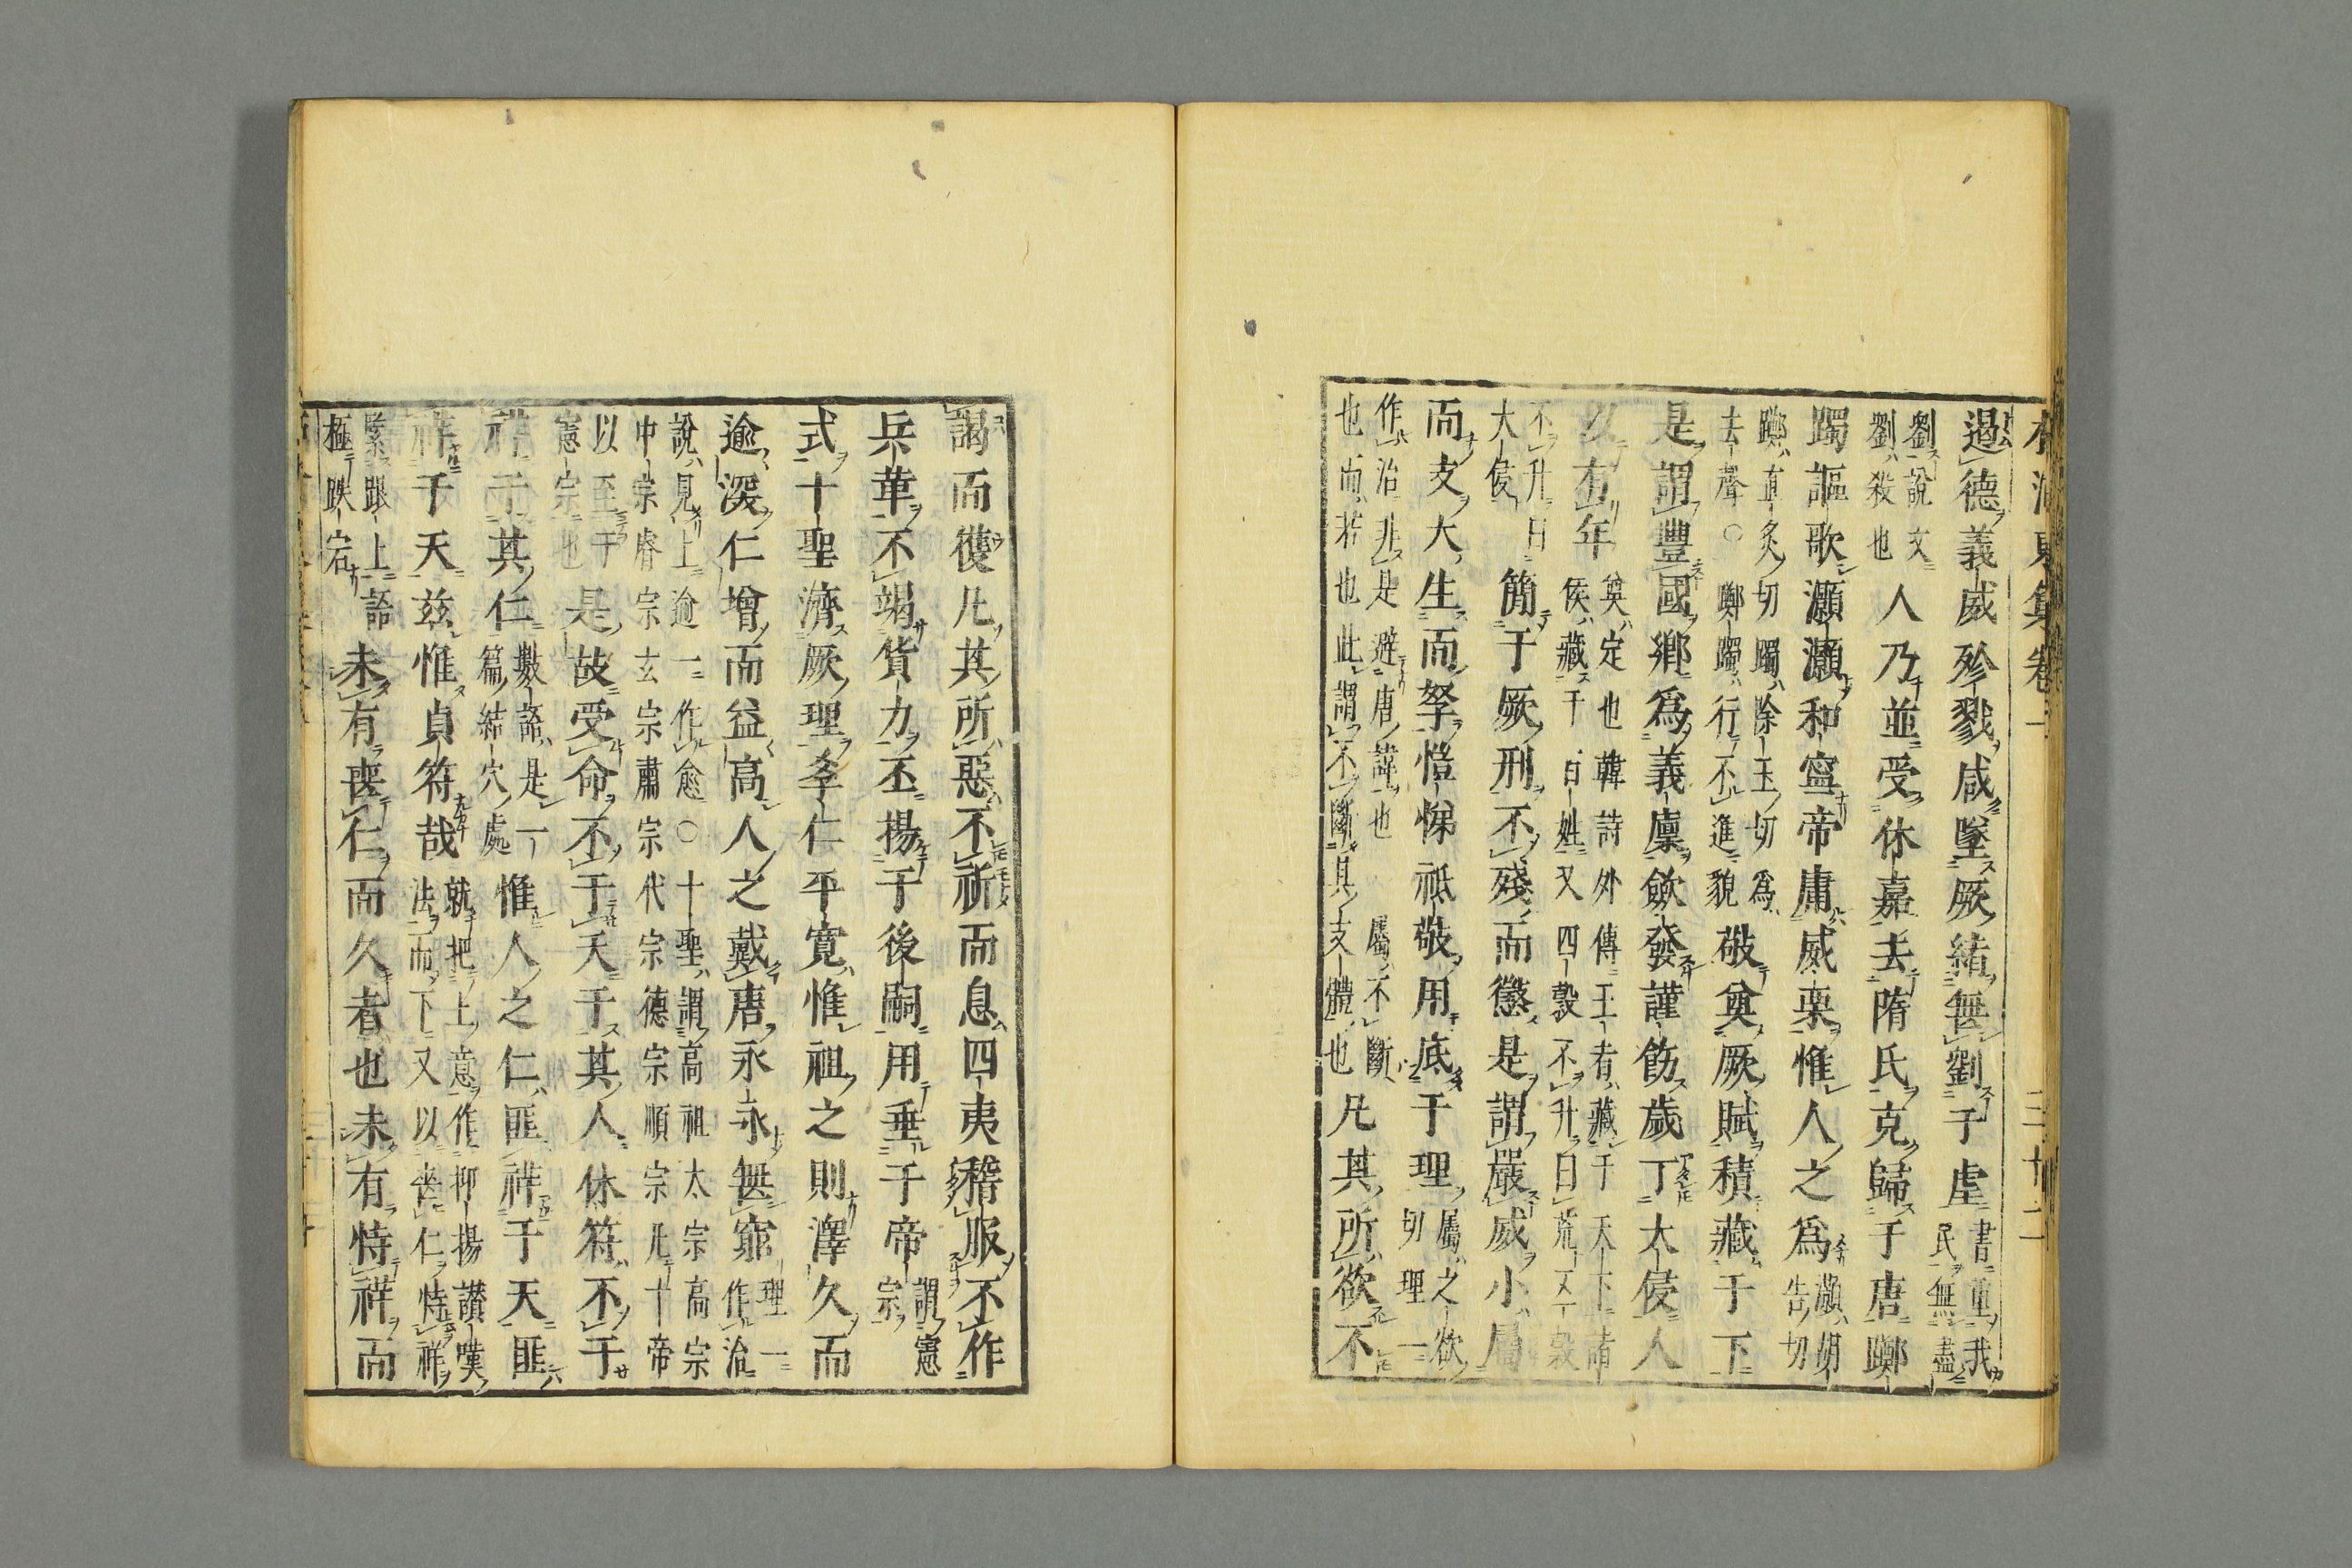 柳河東集卷一 三十二
遏德義威殄戮咸墜厥緒無劉于虐書重我民無盡
劉說文劉殺也人乃並受休嘉去隋氏克歸于唐躑
躅謳歌灝灝和寧帝庸威栗惟人之爲灝胡告切
躑直炙切躅除玉切爲去聲○躑躅行不進貌敬奠厥賦積藏于下
是謂豐國鄉爲義廩歛發謹飭歲丁大侵人
以有年奠定也韓詩外傳王者藏于天下諸侯藏于百姓又四穀不升曰荒一又穀
不升曰大侵簡于厥刑不殘而懲是謂嚴威小屬
而支大生而孥愷悌祗敬用底于理屬之欲切理一
作治非是避唐諱也屬不斷也而若也此謂不斷其支體也凡其所欲不
謁而獲凡其所惡不祈而息四夷稽服不作
兵革不竭貨力丕揚于後嗣用垂于帝謂憲宗
式十聖濟厥理孝仁平寬惟祖之則澤久而
逾深仁增而益高人之戴唐永永無窮理一作治
說見上逾一作愈○十聖謂高祖太宗高宗中宗睿宗玄宗肅宗代宗德宗順宗凡十帝
以至于憲宗也是故受命不于天于其人休符不于
祥于其仁數語是一篇結穴處惟人之仁匪祥于天匪
祥于天茲惟貞符哉就把上意作抑揚讃嘆法而下又以喪仁恃祥
緊跟上語極跌宕未有喪仁而久者也未有恃祥而